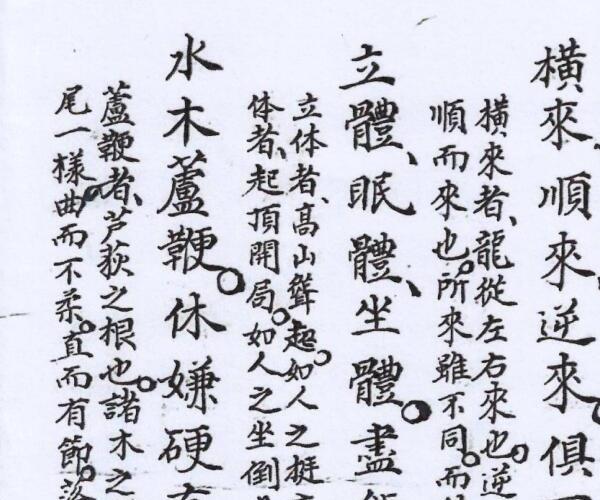 橫來、順來、逆來、俱
橫來者、龍從左右來也。逆
順而來也。所來雖不同。而
立體、眠體、坐體。盡
立体者、高山聳起。如人之挺
体者、起頂開局。如人之坐倒
水木蘆鞭。休嫌硬
蘆鞭者、芦荻之根也。諸木之
尾一樣。曲而不柔。直而有節。落